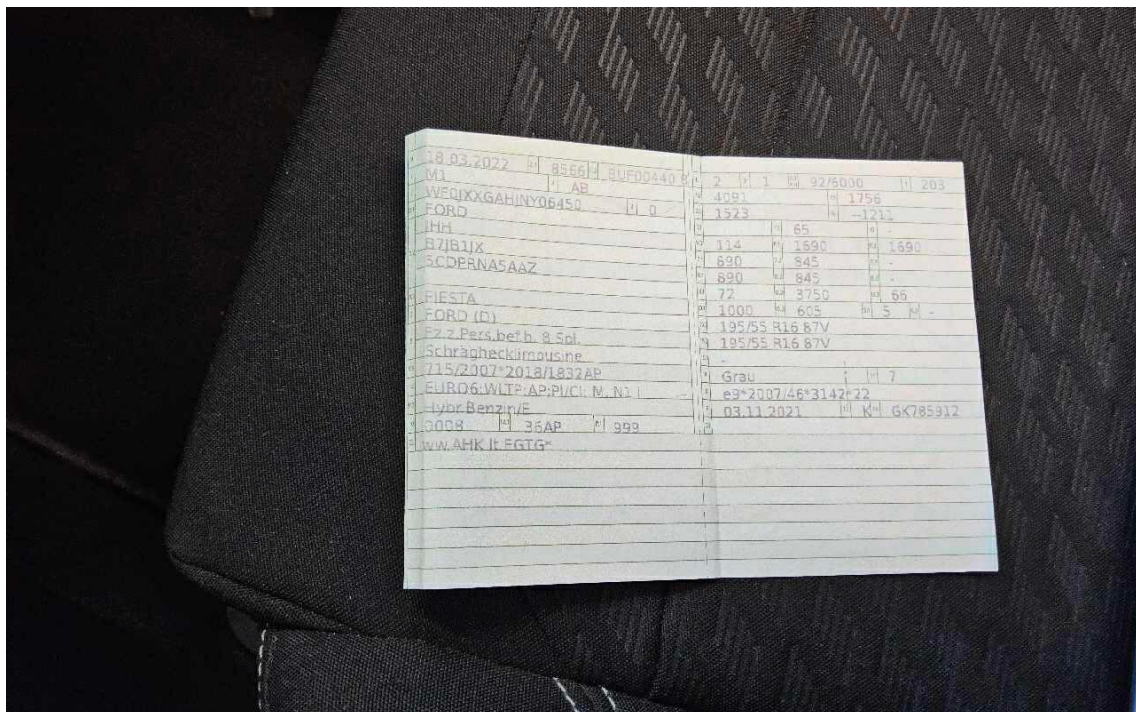 18.03.2022 8566 BUF00440
M1 AB
WF0JXXGAHJNY06450 0
FORD
JHH
B7JB1JX
5CDPRNA5AAZ
FIESTA
FORD (D)
Fz.z.Pers.bef.b. 8 Spl.
Schräghecklimousine
715/2007*2018/1832AP
EURO6;WLTP;AP;PI/CI; M, N1 I
Hybr.Benzin/E
0008 36AP 999
ww.AHK lt.EGTG*
2 1 92/6000 203
4091 1756
1523 --1211
65 -
114 1690 1690
890 845 -
890 845 -
72 3750 66
1000 605 5 -
195/55 R16 87V
195/55 R16 87V
-
Grau 7
e9*2007/46*3142*22
03.11.2021 K GK785912